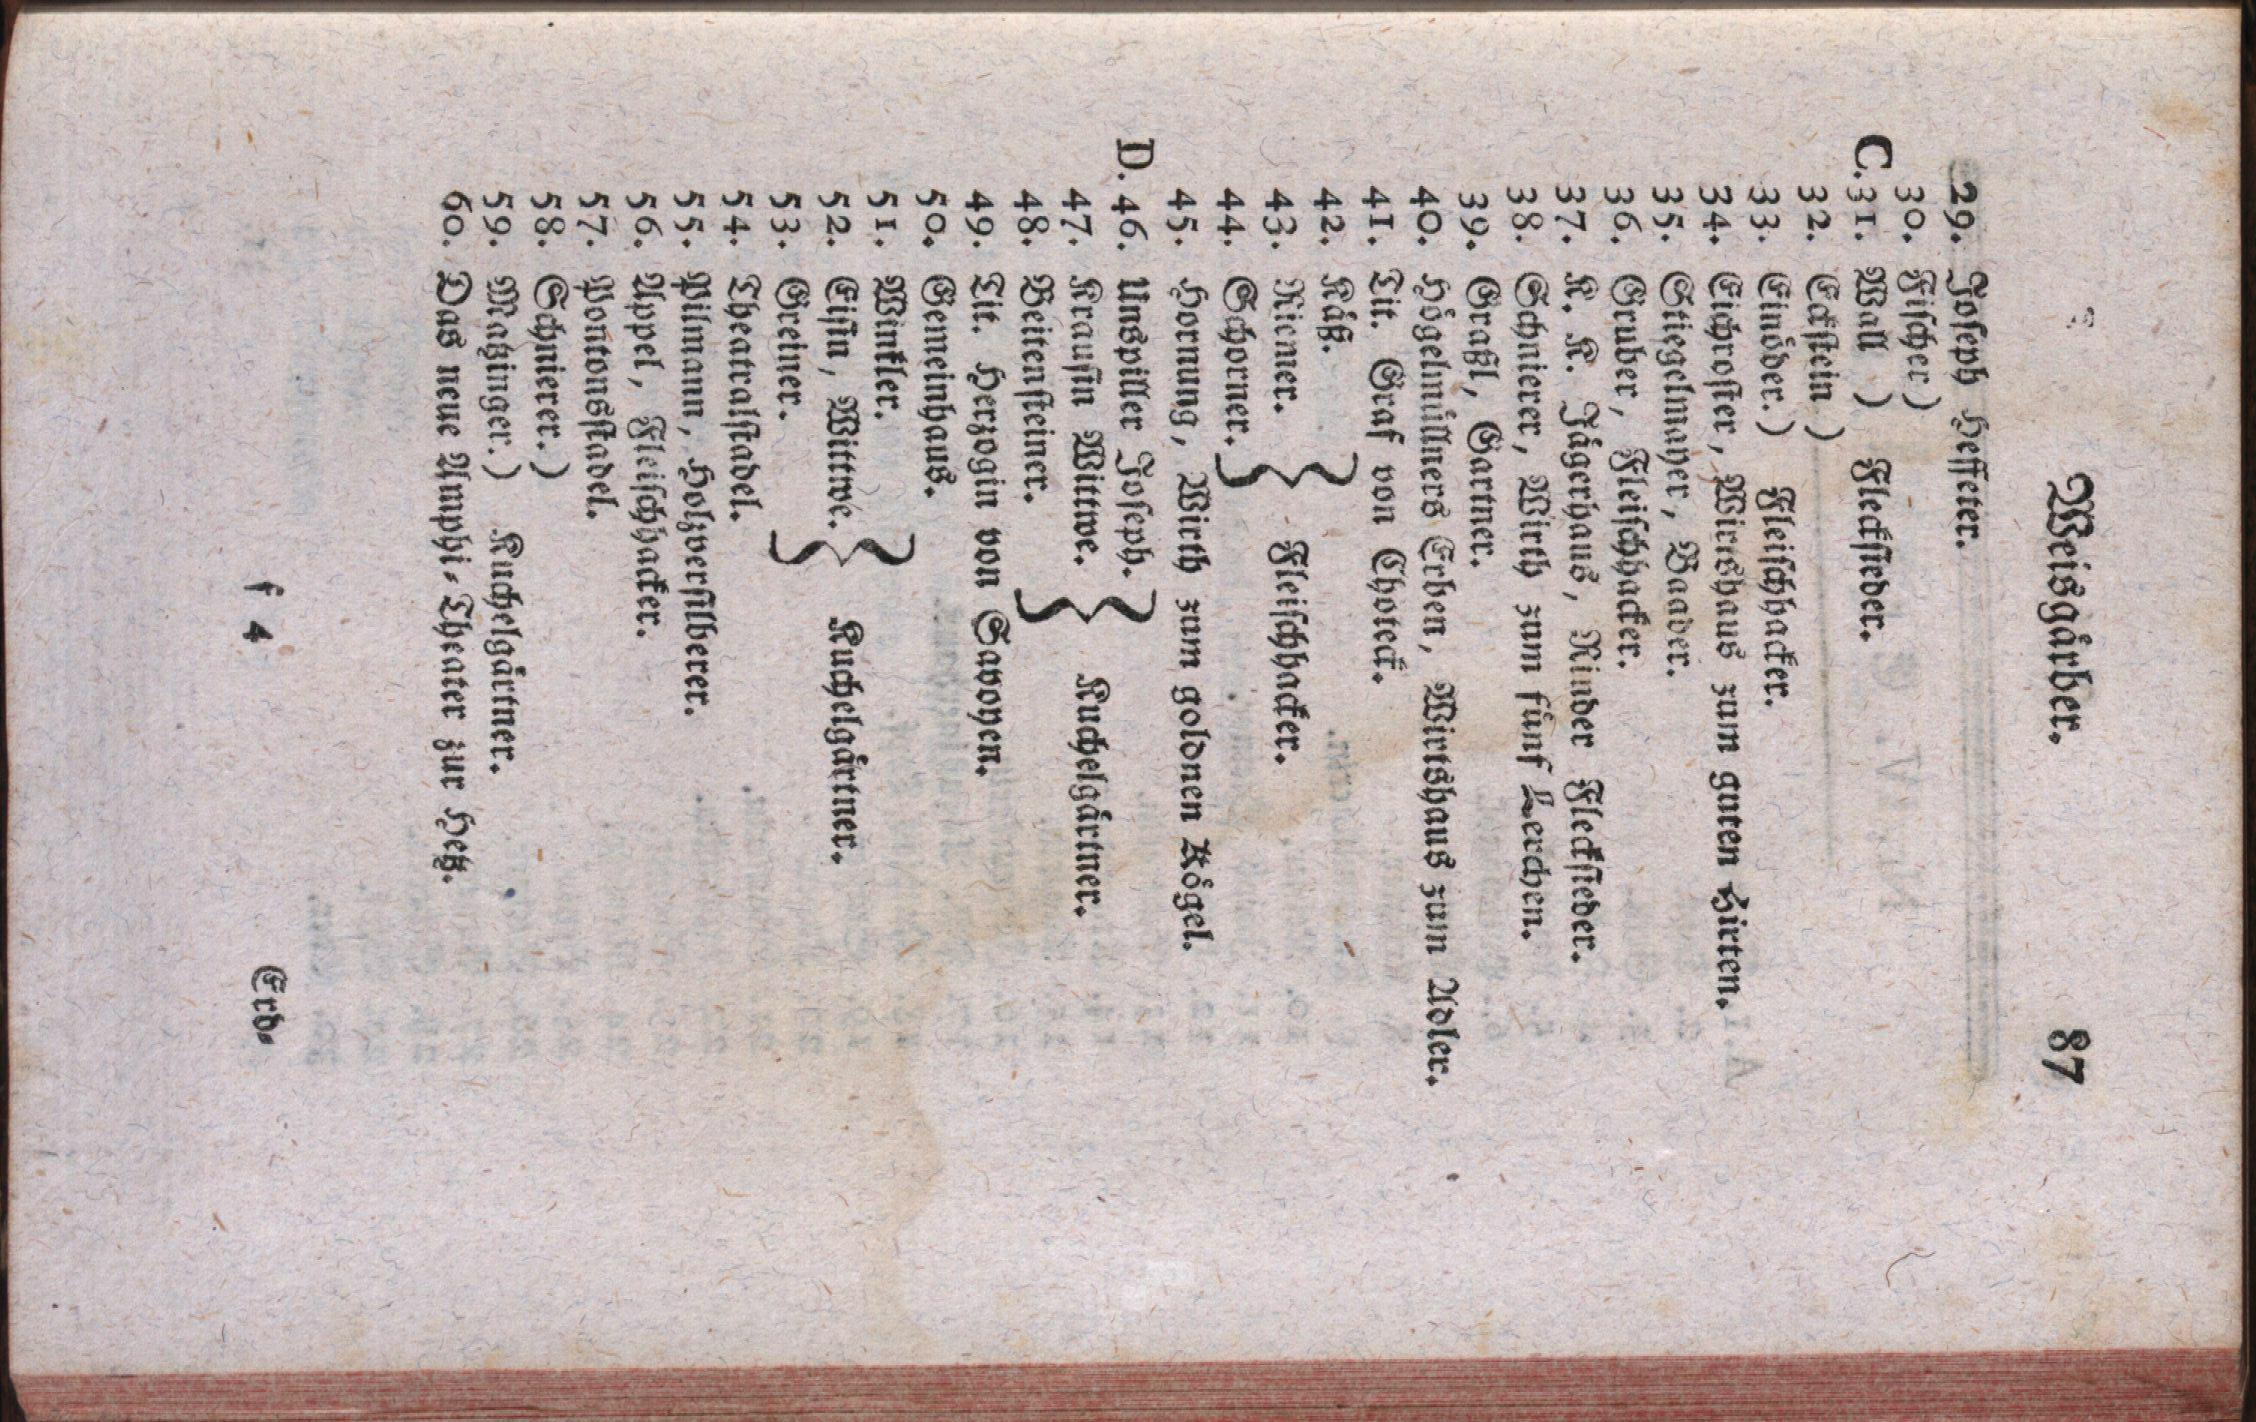 Weisgärber. 87
29. Joseph Heffeter.
30. Fischer )
C. 31. Wall ) Flecksieder.
32. Eckstein )
33. Einöder. ) Fleischhacker.
34. Eichroster, Wirtshaus zum guten Hirten.
35. Stiegelmayer, Baader.
36. Gruber, Fleischhacker.
37. K. K. Jägerhaus, Minder Flecksieder.
38. Schnierer, Wirth zum fünf Lerchen.
39. Graßl, Gartner.
40. Högelmüllners Erben, Wirtshaus zum Adler.
41. Tit. Graf von Choteck.
42. Käß.
43. Riemer. } Fleischhacker.
44. Schorner.
45. Hornung, Wirth zum goldnen Kögel.
D. 46. Unspiller Joseph.
47. Krausin Wittwe. } Kuchelgärtner.
48. Beitensteiner.
49. Tit. Herzogin von Savoyen.
50. Gemeinhaus.
51. Winkler.
52. Eisin, Wittwe. } Kuchelgärtner.
53. Greiner.
54. Theatralstadel.
55. Pilmann, Holzversilberer.
56. Appel, Fleischhacker.
57. Pontonsstadel.
58. Schnierer. )
59. Matzinger. ) Kuchelgärtner.
60. Das neue Amphi-Theater zur Hetz.
f 4 Erd-